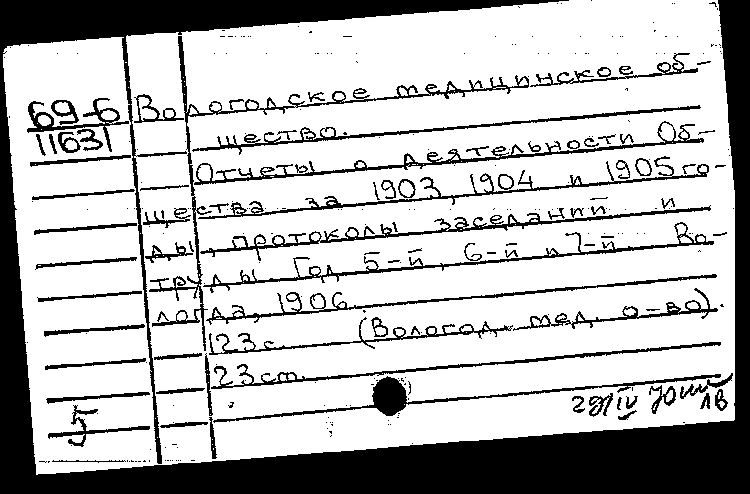 69-6 Вологодское медицинское об-
11631 щество.
Отчеты о деятельности Об-
щества за 1903, 1904 и 1905 го-
ды, протоколы заседаний и
труды. Год 5-й, 6-й и 7-й. Во-
логда, 1906.
123 с. (Вологод. мед. о-во).
23 см.
5
29/IV 70
ЛВ